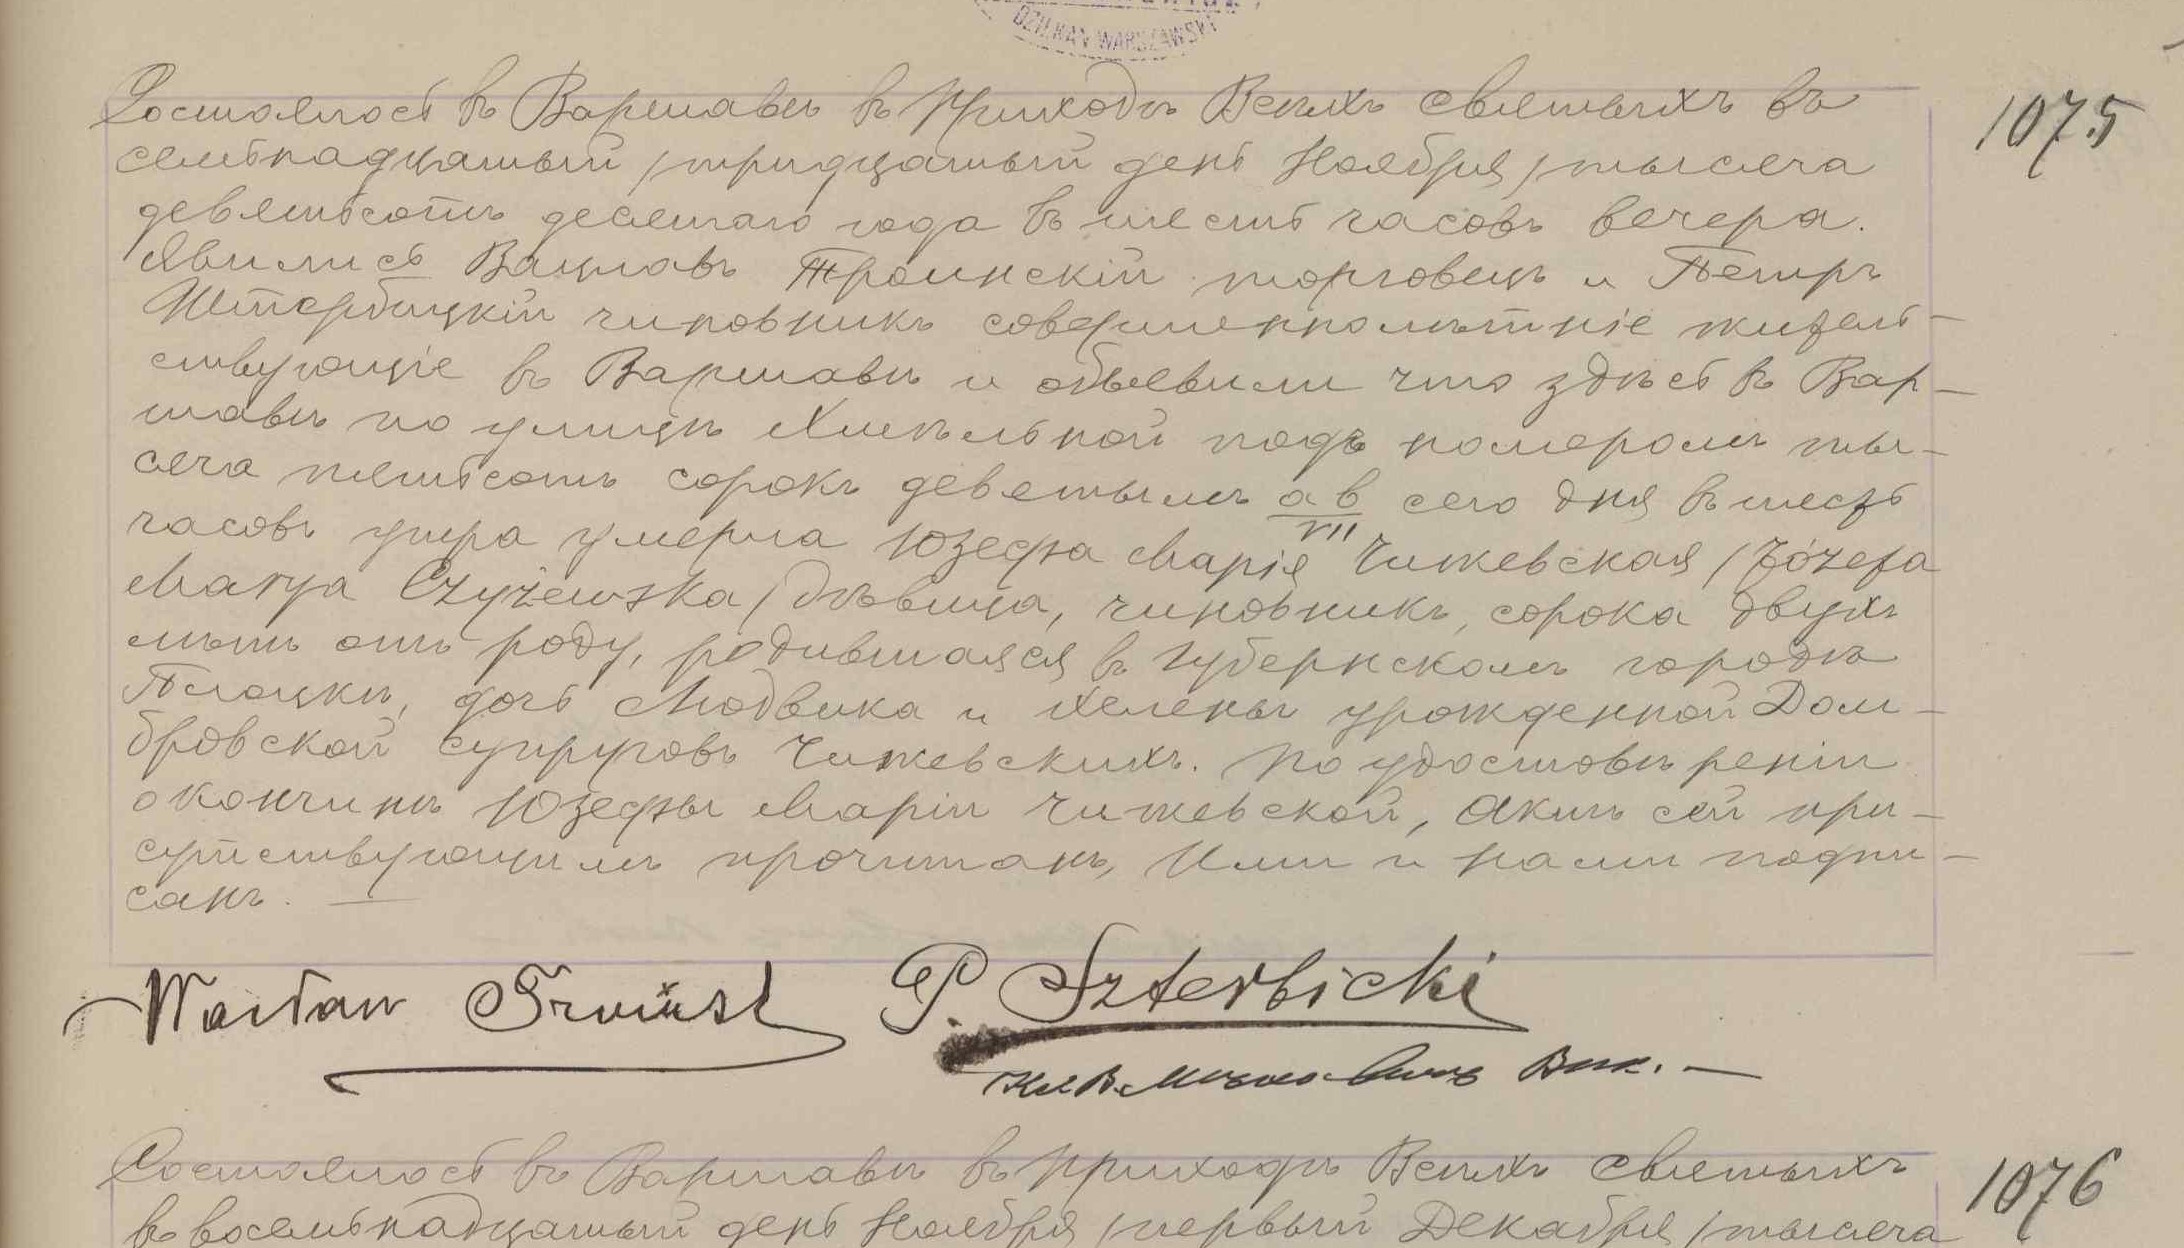 DZIEKAN WARSZAWSKI
1075
Состоялось въ Варшавѣ въ приходѣ Всѣхъ святыхъ въ
семьнадцатый /тридцатый день Ноября/ тысяча
девятьсотъ десятаго года въ шесть часовъ вечера.
Явились Вацлавъ Троинскій торговецъ и Петръ
Штербицкій чиновникъ совершеннолѣтніе житель-
ствующіе въ Варшавѣ и объявили что здѣсь въ Вар-
шавѣ по улицѣ Хмѣльной подъ номеромъ ты-
сяча пятьсотъ сорокъ девятымъ ав/VII сего дня въ шесть
часовъ утра умерла Юзефа Марія Чижевская /Józefa
Marya Czyżewska/ дѣвица, чиновникъ, сорока двухъ
лѣтъ отъ роду, родившаяся въ губернскомъ городѣ
Плоцкѣ, дочь Людвика и Хелены урожденной Дом-
бровской супруговъ Чижевскихъ. По удостовѣреніи
о кончинѣ Юзефы Маріи Чижевской, Актъ сей при-
сутствующимъ прочитанъ, Ими и нами подпи-
санъ. —
Wacław
P. Szterbicki
Вик. —
1076
Состоялось въ Варшавѣ въ приходѣ Всѣхъ святыхъ
въ восемьнадцатый день Ноября /первый Декабря/ тысяча